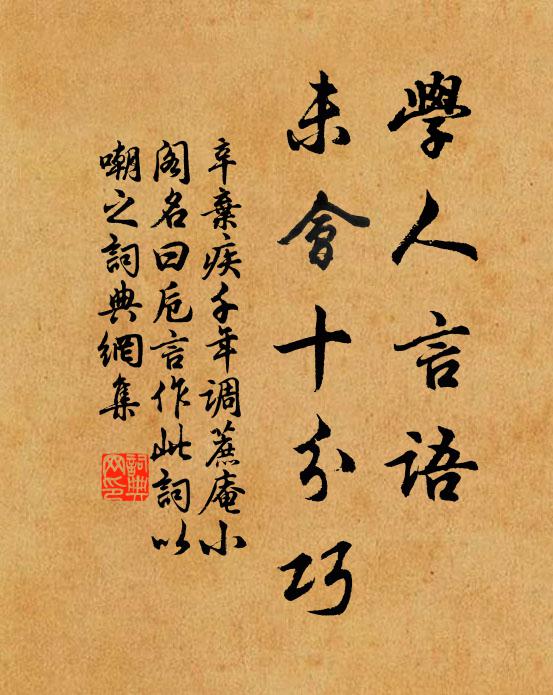 學人言語
未會十分巧
辛棄疾千年调蔗庵小
阁名曰卮言作此詞以
嘲之詞典網集
詞典
网印